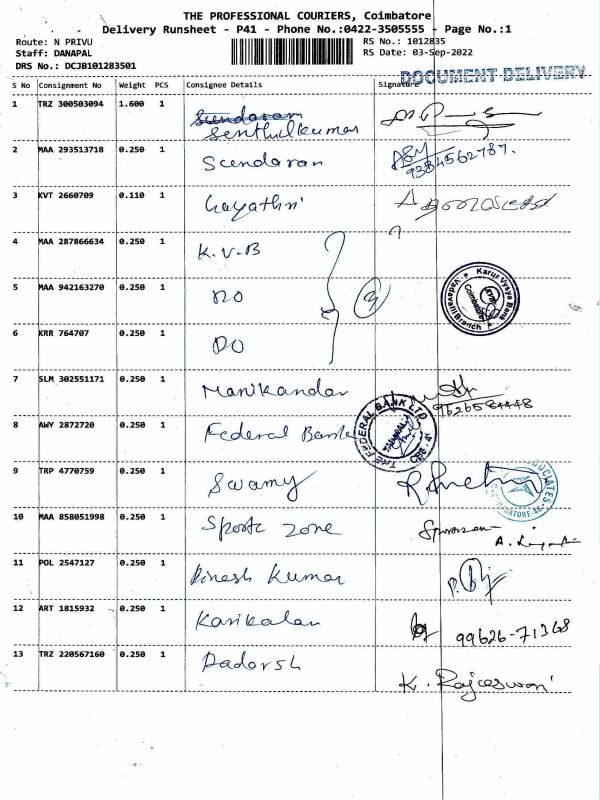 THE PROFESSIONAL COURIERS, Coimbatore
Delivery Runsheet - P41 - Phone No.:0422-3505555 - Page No.:1
Route: N PRIVU RS No.: 1012835
Staff: DANAPAL RS Date: 03-Sep-2022
DRS No.: DCJB101283501
DOCUMENT DELIVERY
S No Consignment No Weight PCS Consignee Details Signature
1 TRZ 300503094 1.600 1 Sundaram
Senthilkumar
2 MAA 293513718 0.250 1 Sundaran
9384562787.
3 KVT 2660709 0.110 1 Gayathri
4 MAA 287866634 0.250 1 K.V.B
5 MAA 942163270 0.250 1 DO
Karur Vysya Bank
Vadavalli Branch
Coimbatore
6 KRR 764707 0.250 1 DO
7 SLM 302551171 0.250 1 Manikandan
9626584448
8 AWY 2872720 0.250 1 Federal Bank
THE FEDERAL BANK LTD
9 TRP 4770759 0.250 1 Swamy
10 MAA 858051998 0.250 1 Sports zone
11 POL 2547127 0.250 1 Dinesh Kumar
12 ART 1815932 0.250 1 Karikalan 99626-71368
13 TRZ 220567160 0.250 1 Padarsh
K. Rajeeswari